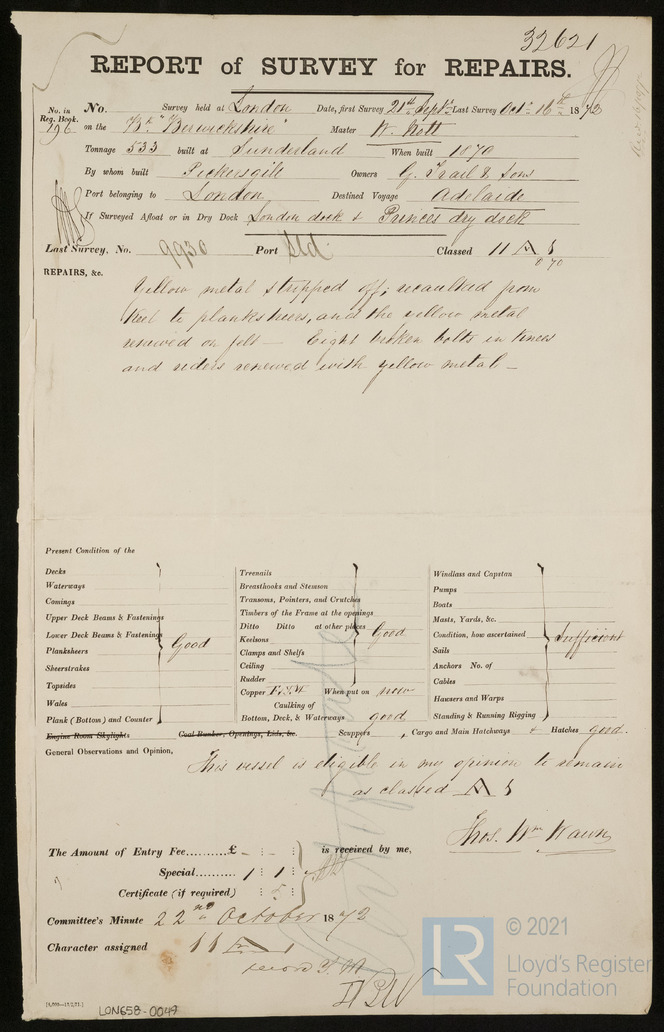 32621
REPORT of SURVEY for REPAIRS.
No. in Reg. Book. 196
No. Survey held at London Date, first Survey 21st Septr Last Survey Octr 16th 1872
on the Bk "Berwickshire" Master W. Nott
Tonnage 533 built at Sunderland When built 1870
By whom built Pickersgill Owners G. Trail & Sons
Port belonging to London Destined Voyage Adelaide
If Surveyed Afloat or in Dry Dock London dock & Princes dry dock
Last Survey, No. 9930 Port Sld Classed 11 A 1
70
REPAIRS, &c.
Yellow metal stripped off, recaulked from
Keel to planksheers, and the yellow metal
renewed on felt — Eight broken bolts in Knees
and riders renewed with yellow metal —
Present Condition of the
Decks
Waterways
Comings
Upper Deck Beams & Fastenings
Lower Deck Beams & Fastenings
Planksheers
Sheerstrakes
Topsides
Wales
Plank (Bottom) and Counter
Good
Treenails
Breasthooks and Stemson
Transoms, Pointers, and Crutches
Timbers of the Frame at the openings
Ditto Ditto at other places
Keelsons
Clamps and Shelfs
Ceiling
Rudder
Good
Copper F.Y.M When put on now
Caulking of
Bottom, Deck, & Waterways good
Windlass and Capstan
Pumps
Boats
Masts, Yards, &c.
Condition, how ascertained
Sails
Anchors No. of
Cables
Hawsers and Warps
Standing & Running Rigging
Sufficient
Engine Room Skylights Coal Bunker, Openings, Lids, &c. Scuppers, Cargo and Main Hatchways & Hatches good.
General Observations and Opinion,
This vessel is eligible in my opinion to remain
as classed A 1
Thos. Wm Wawn
The Amount of Entry Fee..........£ - : - : is received by me,
Special.......... 1 : 1 :
Certificate (if required) : 5 :
Committee's Minute 22nd October 1872
Character assigned 11 A 1
record Y.M
LON658-0049
© 2021
LR
Lloyd's Register
Foundation